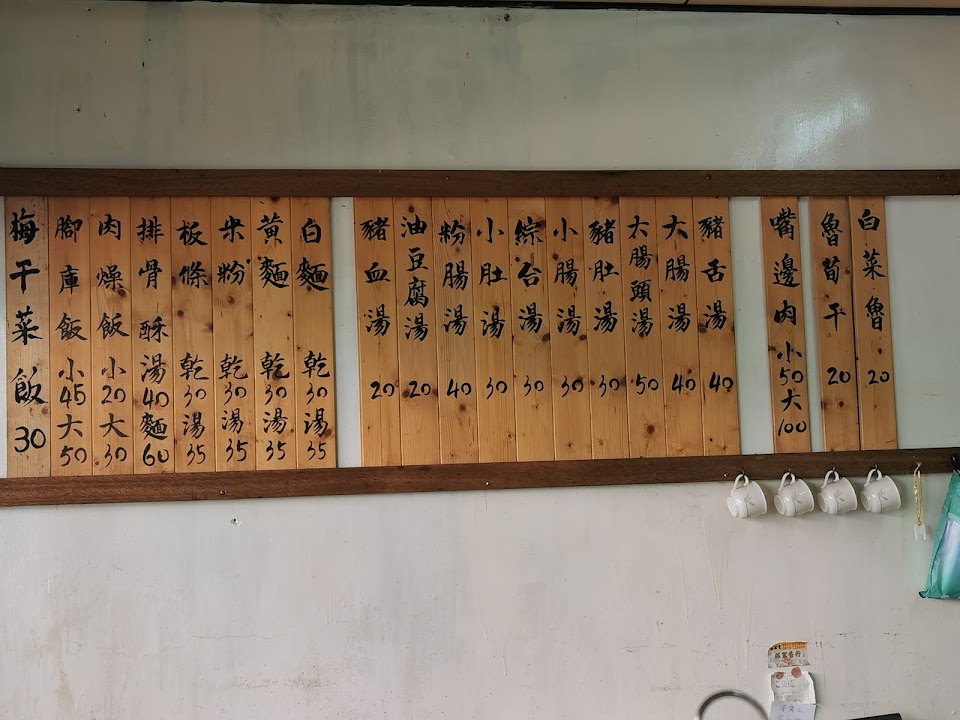 白菜魯 20
魯荀干 20
嘴邊肉 小50 大100
豬舌湯 40
大腸湯 40
大腸頭湯 50
豬肚湯 30
小腸湯 30
綜台湯 30
小肚湯 30
粉腸湯 40
油豆腐湯 20
豬血湯 20
白麵 乾30 湯35
黃麵 乾30 湯35
米粉 乾30 湯35
板條 乾30 湯35
排骨酥 湯40 麵60
肉燥飯 小20 大30
腳庫飯 小45 大50
梅干菜飯 30